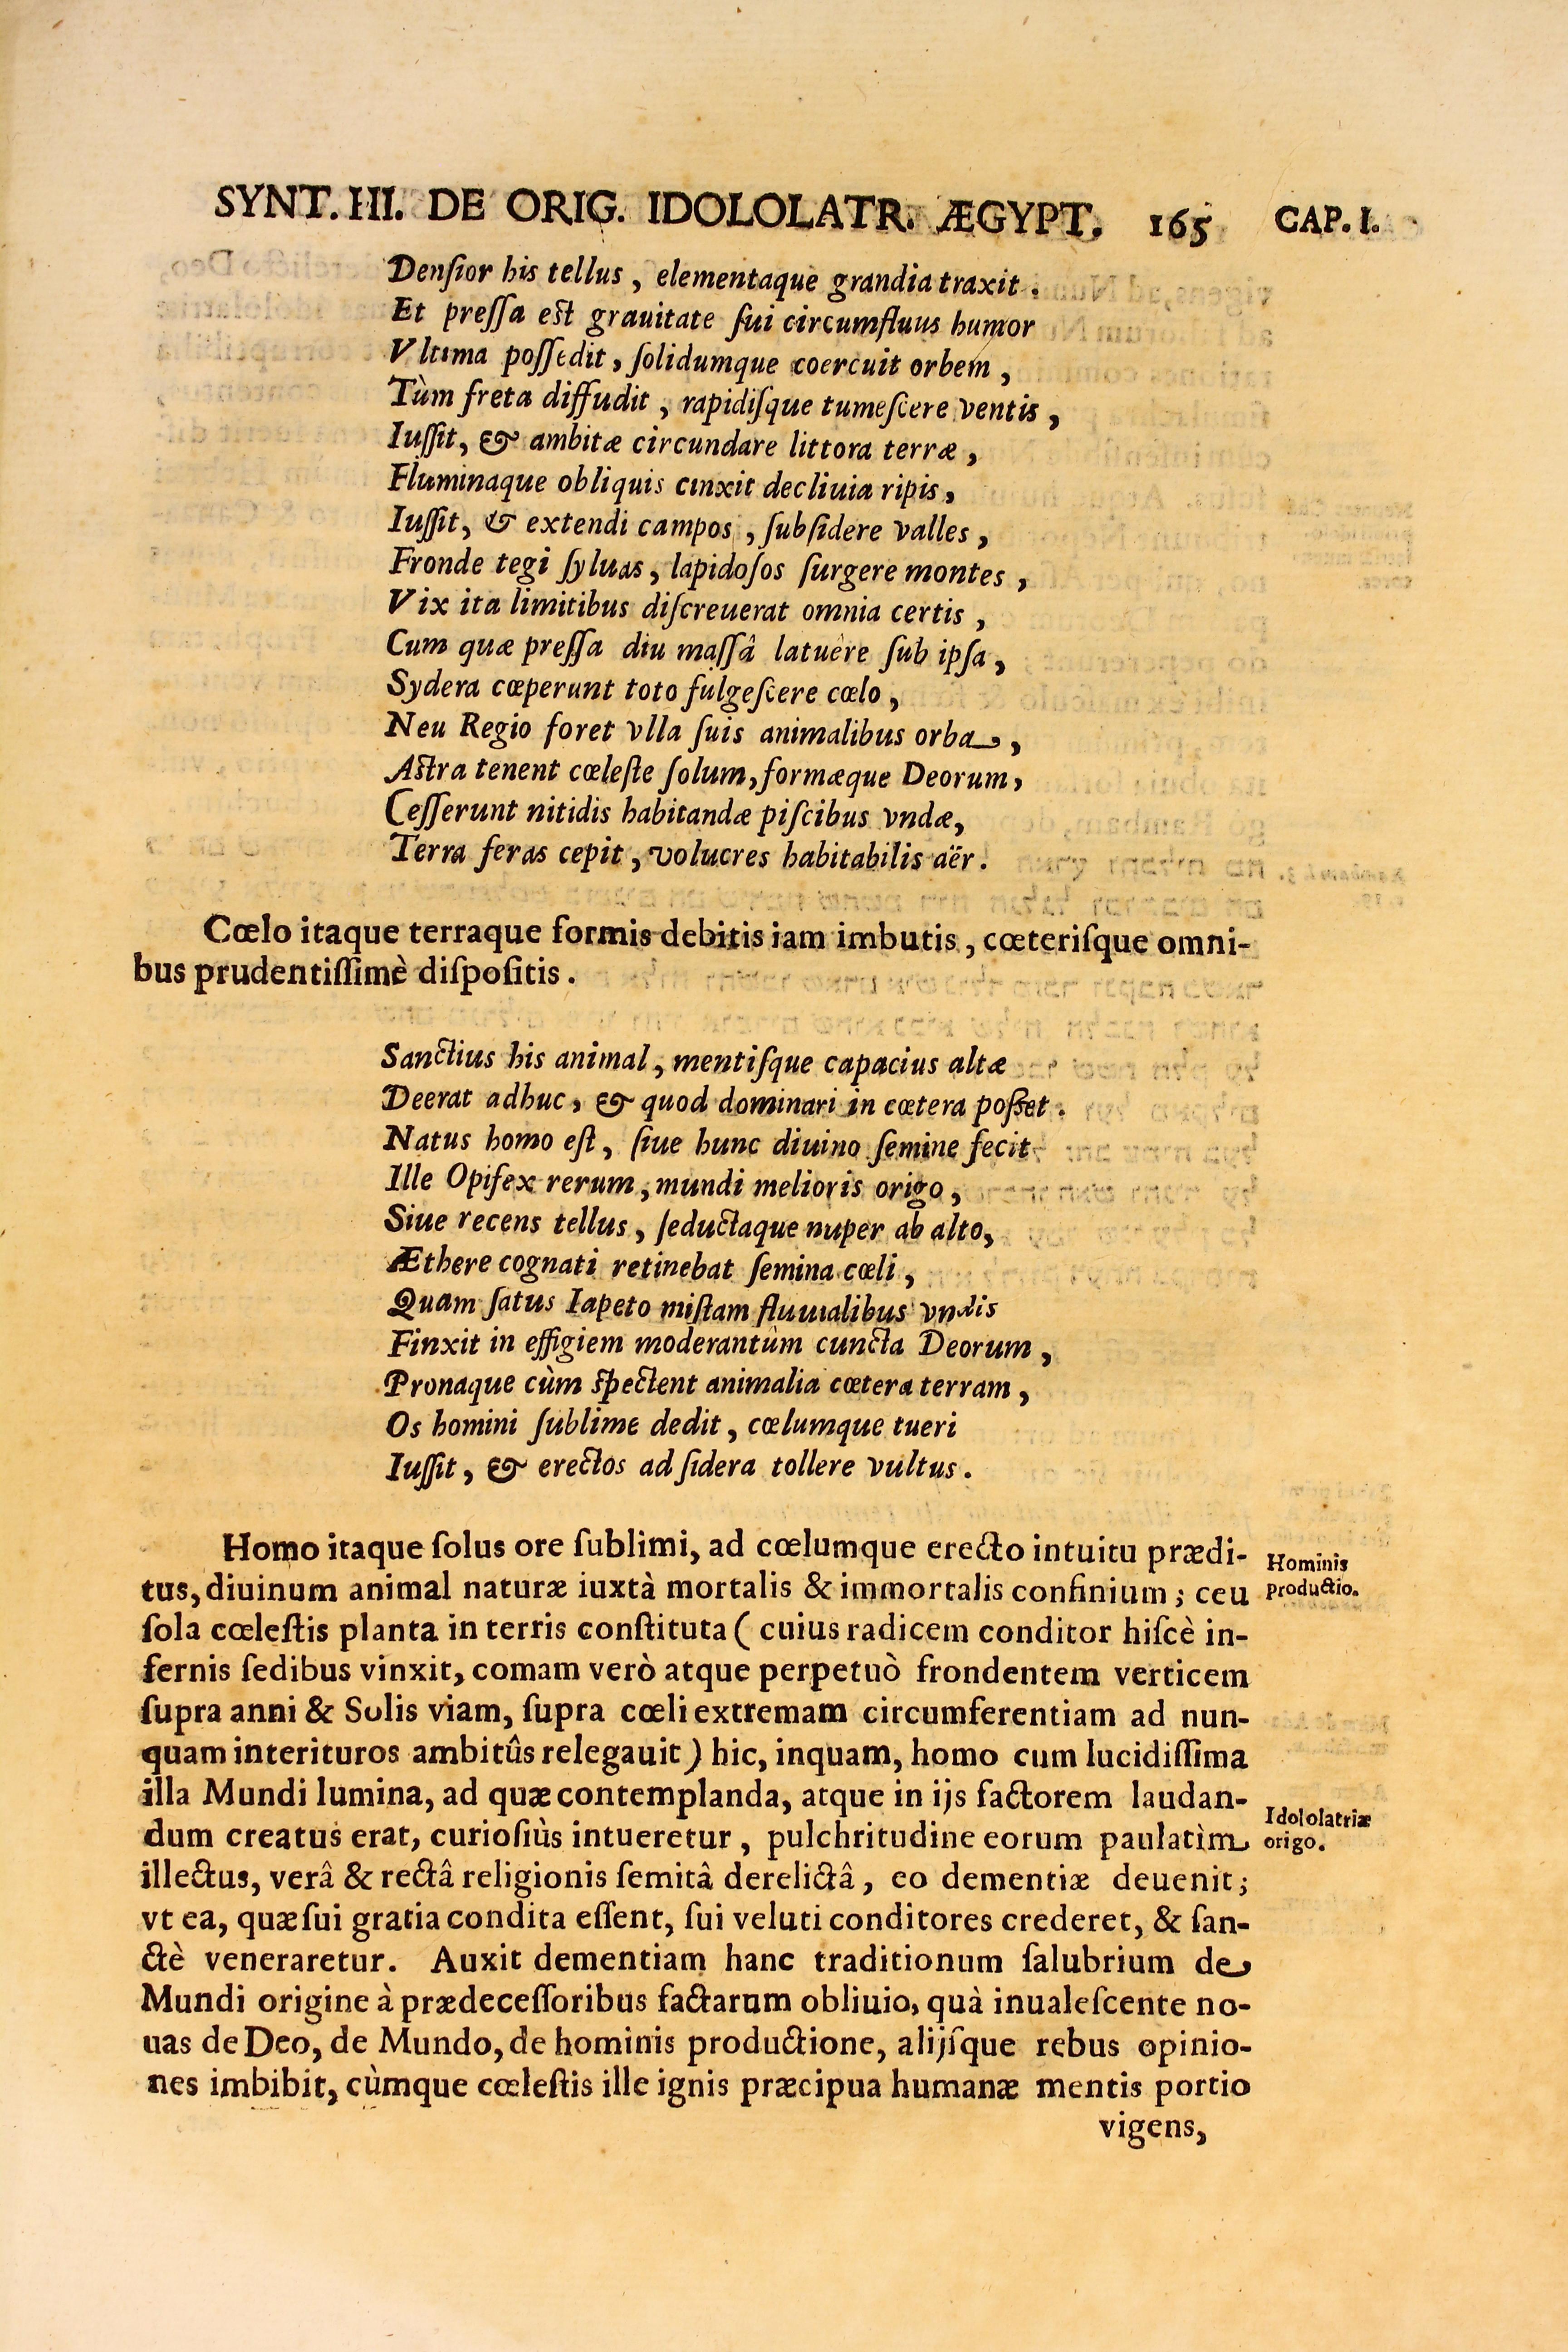 SYNT. III. DE ORIG. IDOLOLATR. ÆGYPT. 165 CAP. I.
Denſior his tellus, elementaque grandia traxit.
Et preſſa eſt grauitate ſui circumfluus humor
Vltima poſſedit, ſolidumque coercuit orbem,
Tùm freta diffudit, rapidiſque tumeſcere ventis,
Iuſſit, & ambitæ circundare littora terræ,
Fluminaque obliquis cinxit decliuia ripis,
Iuſſit, & extendi campos, ſubſidere valles,
Fronde tegi ſyluas, lapidoſos ſurgere montes,
Vix ita limitibus diſcreuerat omnia certis,
Cum quæ preſſa diu maſſâ latuère ſub ipſa,
Sydera cœperunt toto fulgeſcere cœlo,
Neu Regio foret vlla ſuis animalibus orba,
Aſtra tenent cœleſte ſolum, formæque Deorum,
Ceſſerunt nitidis habitandæ piſcibus vndæ,
Terra feras cepit, volucres habitabilis aër.
Cœlo itaque terraque formis debitis iam imbutis, cœteriſque omni-
bus prudentiſſimè diſpoſitis.
Sanctius his animal, mentiſque capacius altæ
Deerat adhuc, & quod dominari in cœtera poſſet.
Natus homo eſt, ſiue hunc diuino ſemine fecit
Ille Opifex rerum, mundi melioris origo,
Siue recens tellus, ſeductaque nuper ab alto,
Æthere cognati retinebat ſemina cœli,
Quam ſatus Iapeto miſtam fluuialibus vndis
Finxit in effigiem moderantùm cuncta Deorum,
Pronaque cùm ſpectent animalia cœtera terram,
Os homini ſublime dedit, cœlumque tueri
Iuſſit, & erectos ad ſidera tollere vultus.
Homo itaque ſolus ore ſublimi, ad cœlumque erecto intuitu prædi-
Hominis
tus, diuinum animal naturæ iuxtà mortalis & immortalis confinium; ceu
productio.
ſola cœleſtis planta in terris conſtituta (cuius radicem conditor hiſcè in-
fernis ſedibus vinxit, comam verò atque perpetuò frondentem verticem
ſupra anni & Solis viam, ſupra cœli extremam circumferentiam ad nun-
quam interituros ambitûs relegauit) hic, inquam, homo cum lucidiſſima
illa Mundi lumina, ad quæ contemplanda, atque in ijs factorem laudan-
Idololatriæ
dum creatus erat, curioſiùs intueretur, pulchritudine eorum paulatìm
origo.
illectus, verâ & rectâ religionis ſemitâ derelictâ, eo dementiæ deuenit;
vt ea, quæ ſui gratia condita eſſent, ſui veluti conditores crederet, & ſan-
ctè veneraretur. Auxit dementiam hanc traditionum ſalubrium de
Mundi origine à prædeceſſoribus factarum obliuio, quà inualeſcente no-
uas de Deo, de Mundo, de hominis productione, alijſque rebus opinio-
nes imbibit, cùmque cœleſtis ille ignis præcipua humanæ mentis portio
vigens,